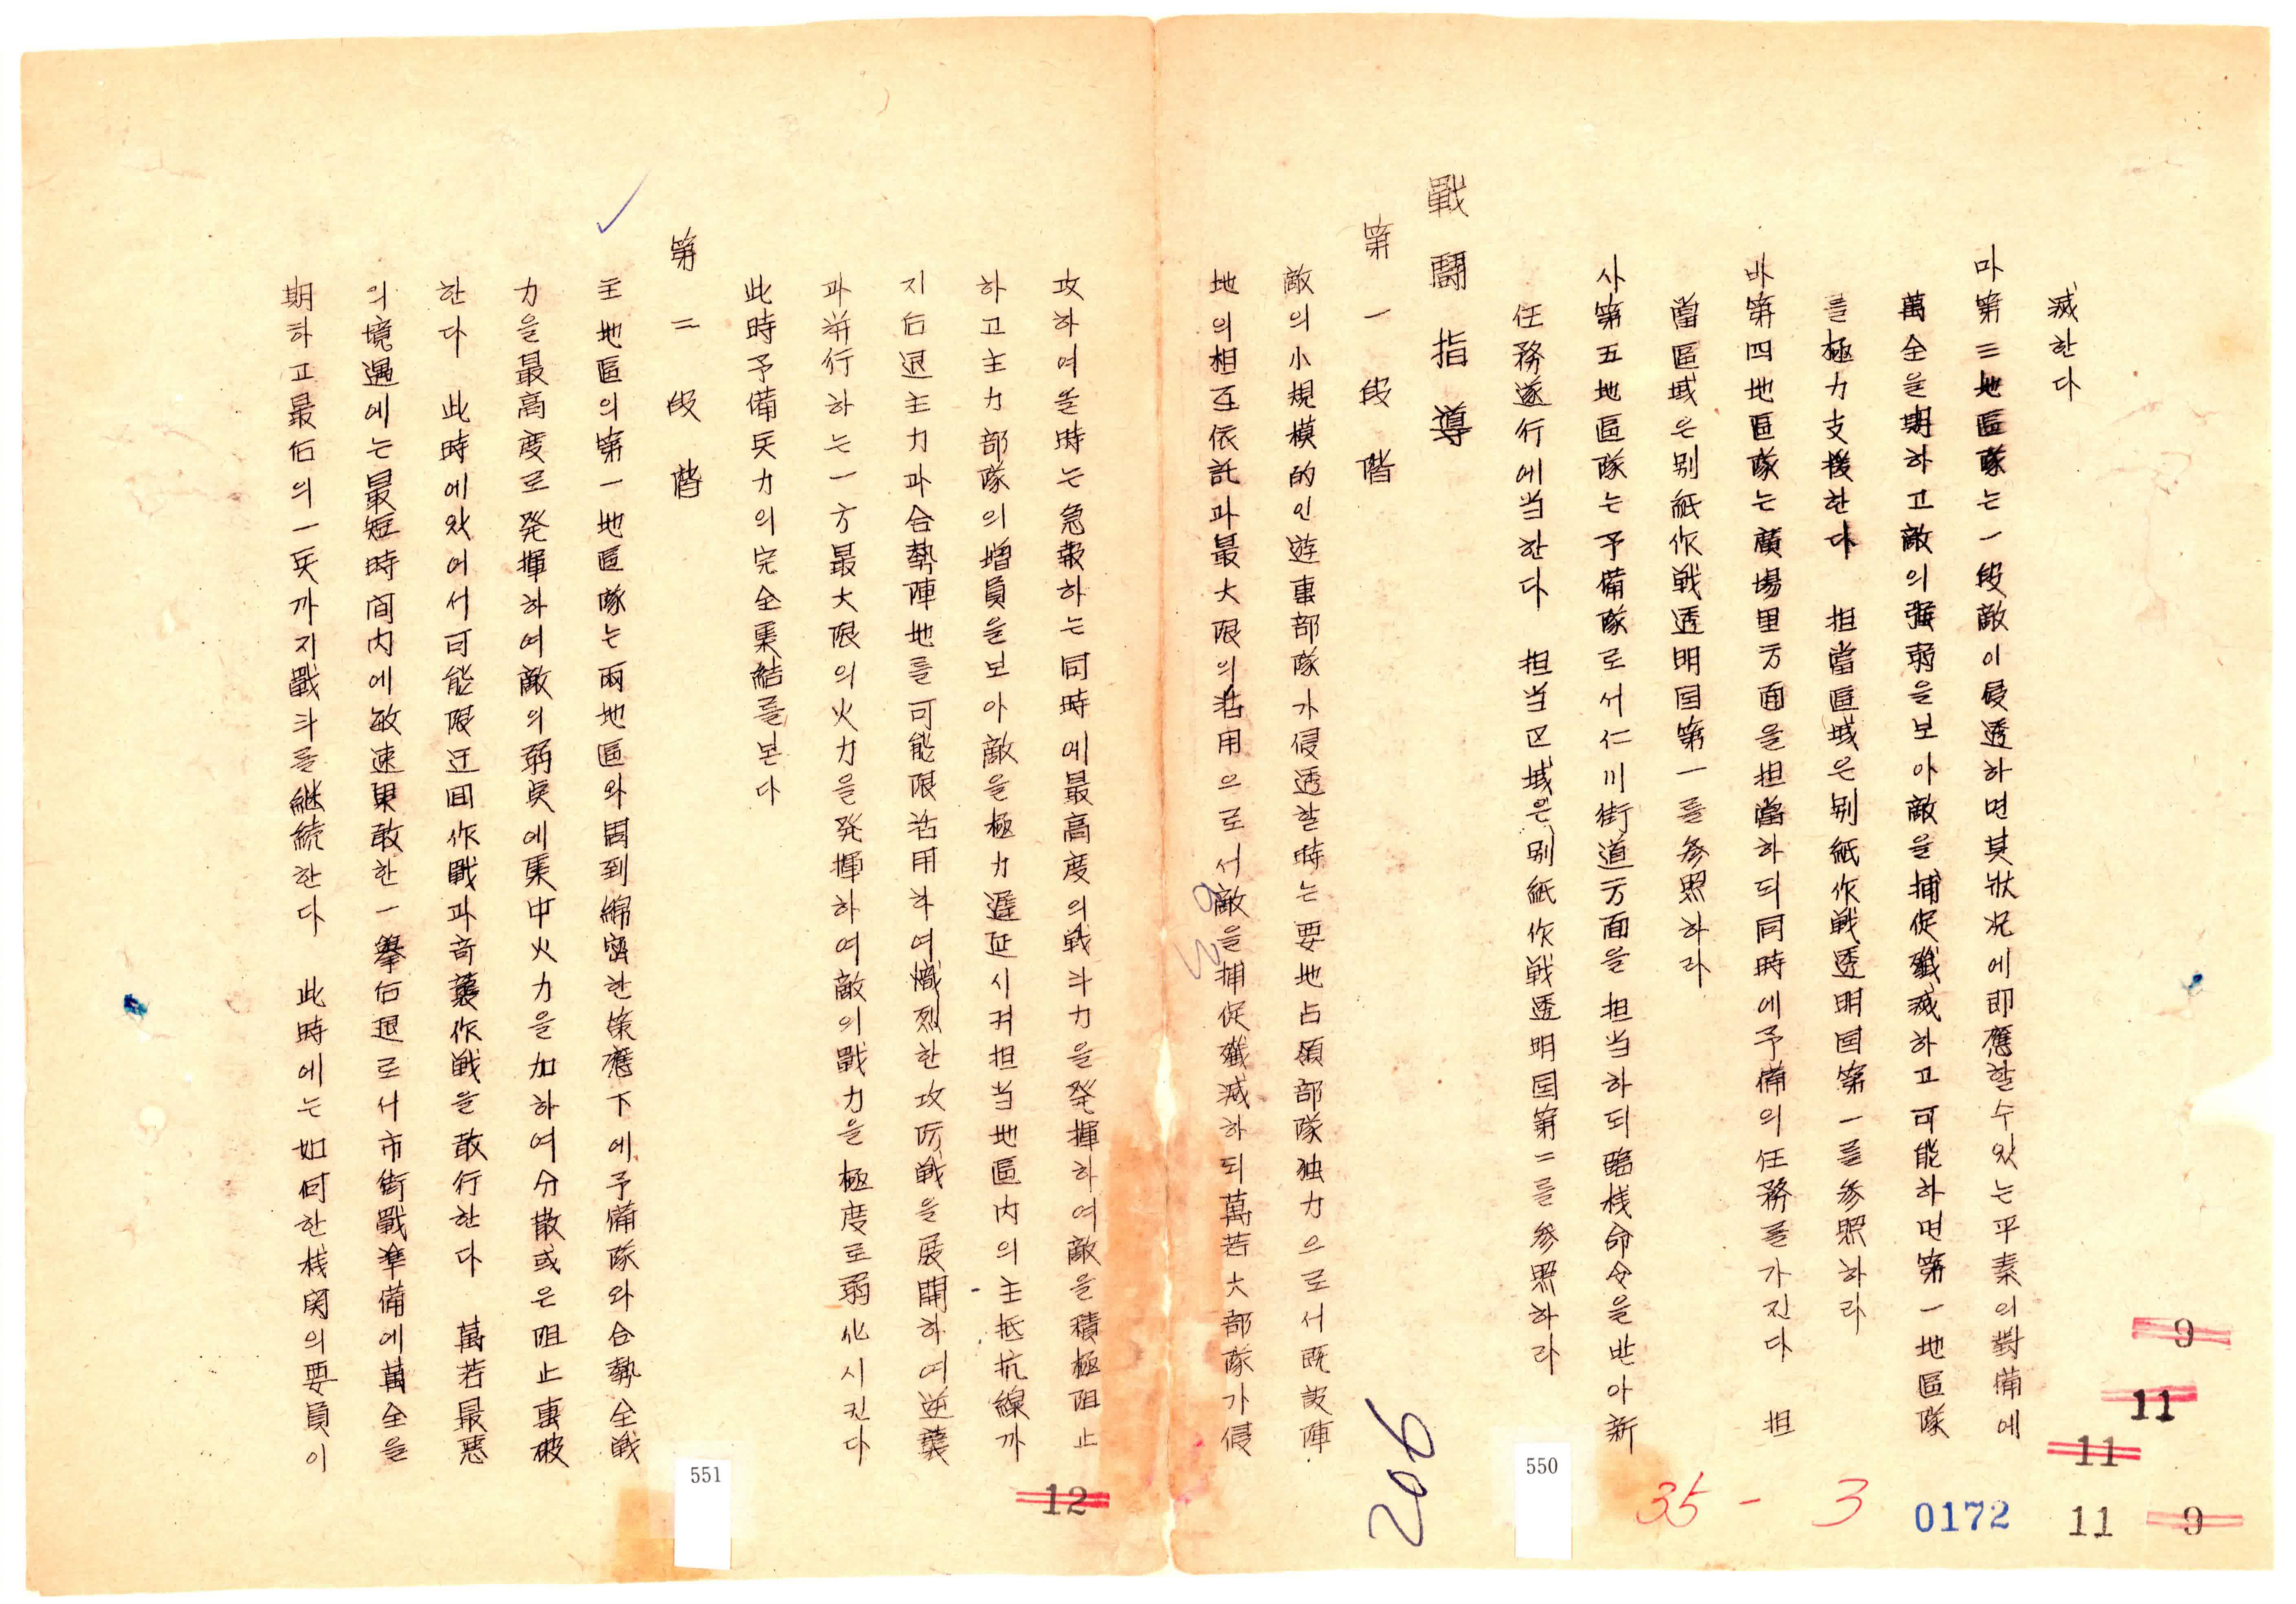 滅한다
마 第三地區隊는 一段敵이侵透하면其狀况에即應할수있는平素의對備에
萬全을期하고敵의强弱을보아敵을捕促殲滅하고可能하면第一地區隊
를極力支援한다 担當區域은別紙作戦透明国第一를参照하라
바 第四地區隊는廣場里方面을担當하되同時에予備의任務를가진다 担
當區域은別紙作戦透明国第一를参照하라
사 第五地區隊는予備隊로서仁川街道方面을担当하되臨桟命令을받아新
任務遂行에当한다 担当区域은別紙作戦透明国第二를参照하라
戰鬪指導
第一段階
敵의小規模的인遊擊部隊가侵透할時는要地占領部隊独力으로서既設陣
地의相互依託과最大限의活用으로서敵을捕促殲滅하되萬若大部隊가侵
攻하여올時는急報하는同時에最高度의戦斗力을発揮하여敵을積極阻止
하고主力部隊의增員을보아敵을極力遲延시켜担当地區内의主抵抗線까
지后退主力과合勢陣地를可能限活用하여熾烈한攻防戦을展開하여逆襲
과并行하는一方最大限의火力을発揮하여敵의戰力을極度로弱化시킨다
此時予備兵力의完全集結를본다
第二段階
主地區의第一地區隊는兩地區와周到綿密한策應下에予備隊와合勢全戦
力을最高度로発揮하여敵의弱点에集中火力을加하여分散或은阻止擊破
한다 此時에있어서可能限迂回作戰과奇襲作戦을敢行한다 萬若最悪
의境遇에는最短時间内에敏速果敢한一擧后退로서市街戰準備에萬全을
期하고最后의一兵까지戰斗를継続한다 此時에는如何한桟関의要員이
9
11
11
11 9
0172
35-3
550
206
12
551